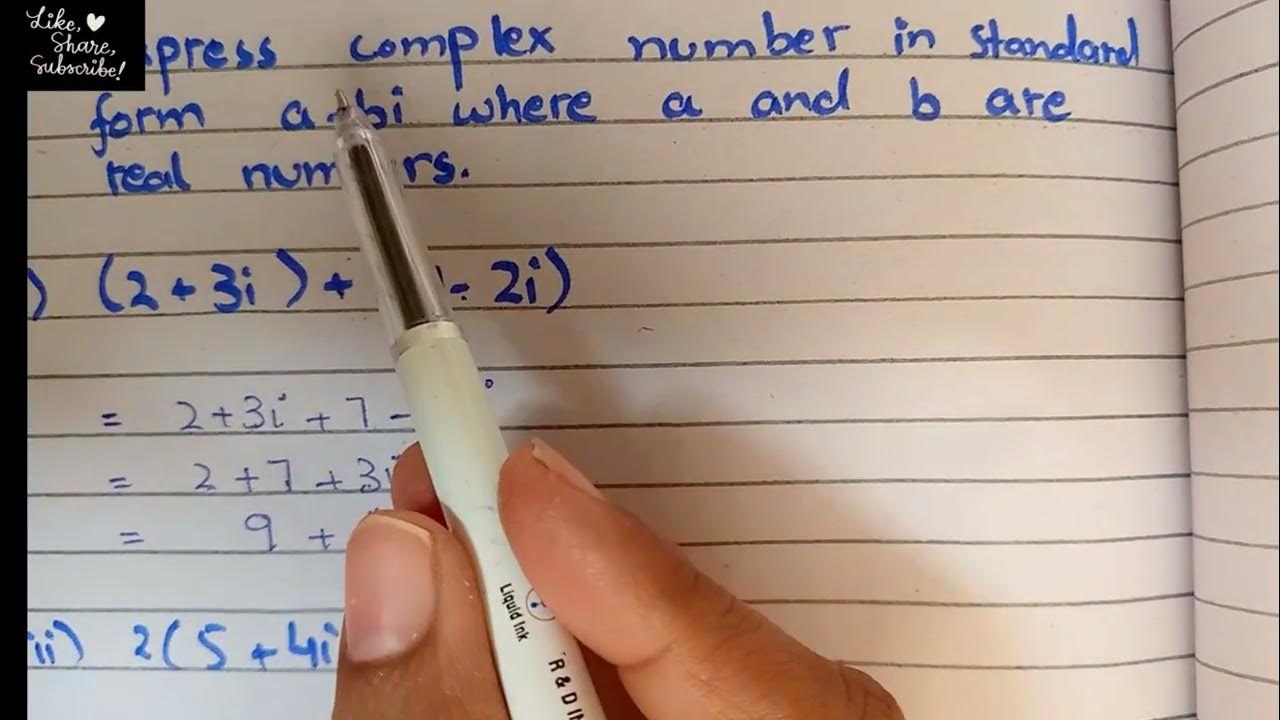 Like,
Share,
Subscribe!
xpress complex number in standard
form a+bi where a and b are
real num rs.
) (2 + 3i) + - 2i)
= 2+3i + 7 -
= 2 + 7 + 3i
= 9 +
ii) 2(5 + 4i
Liquid Ink
R & D IN